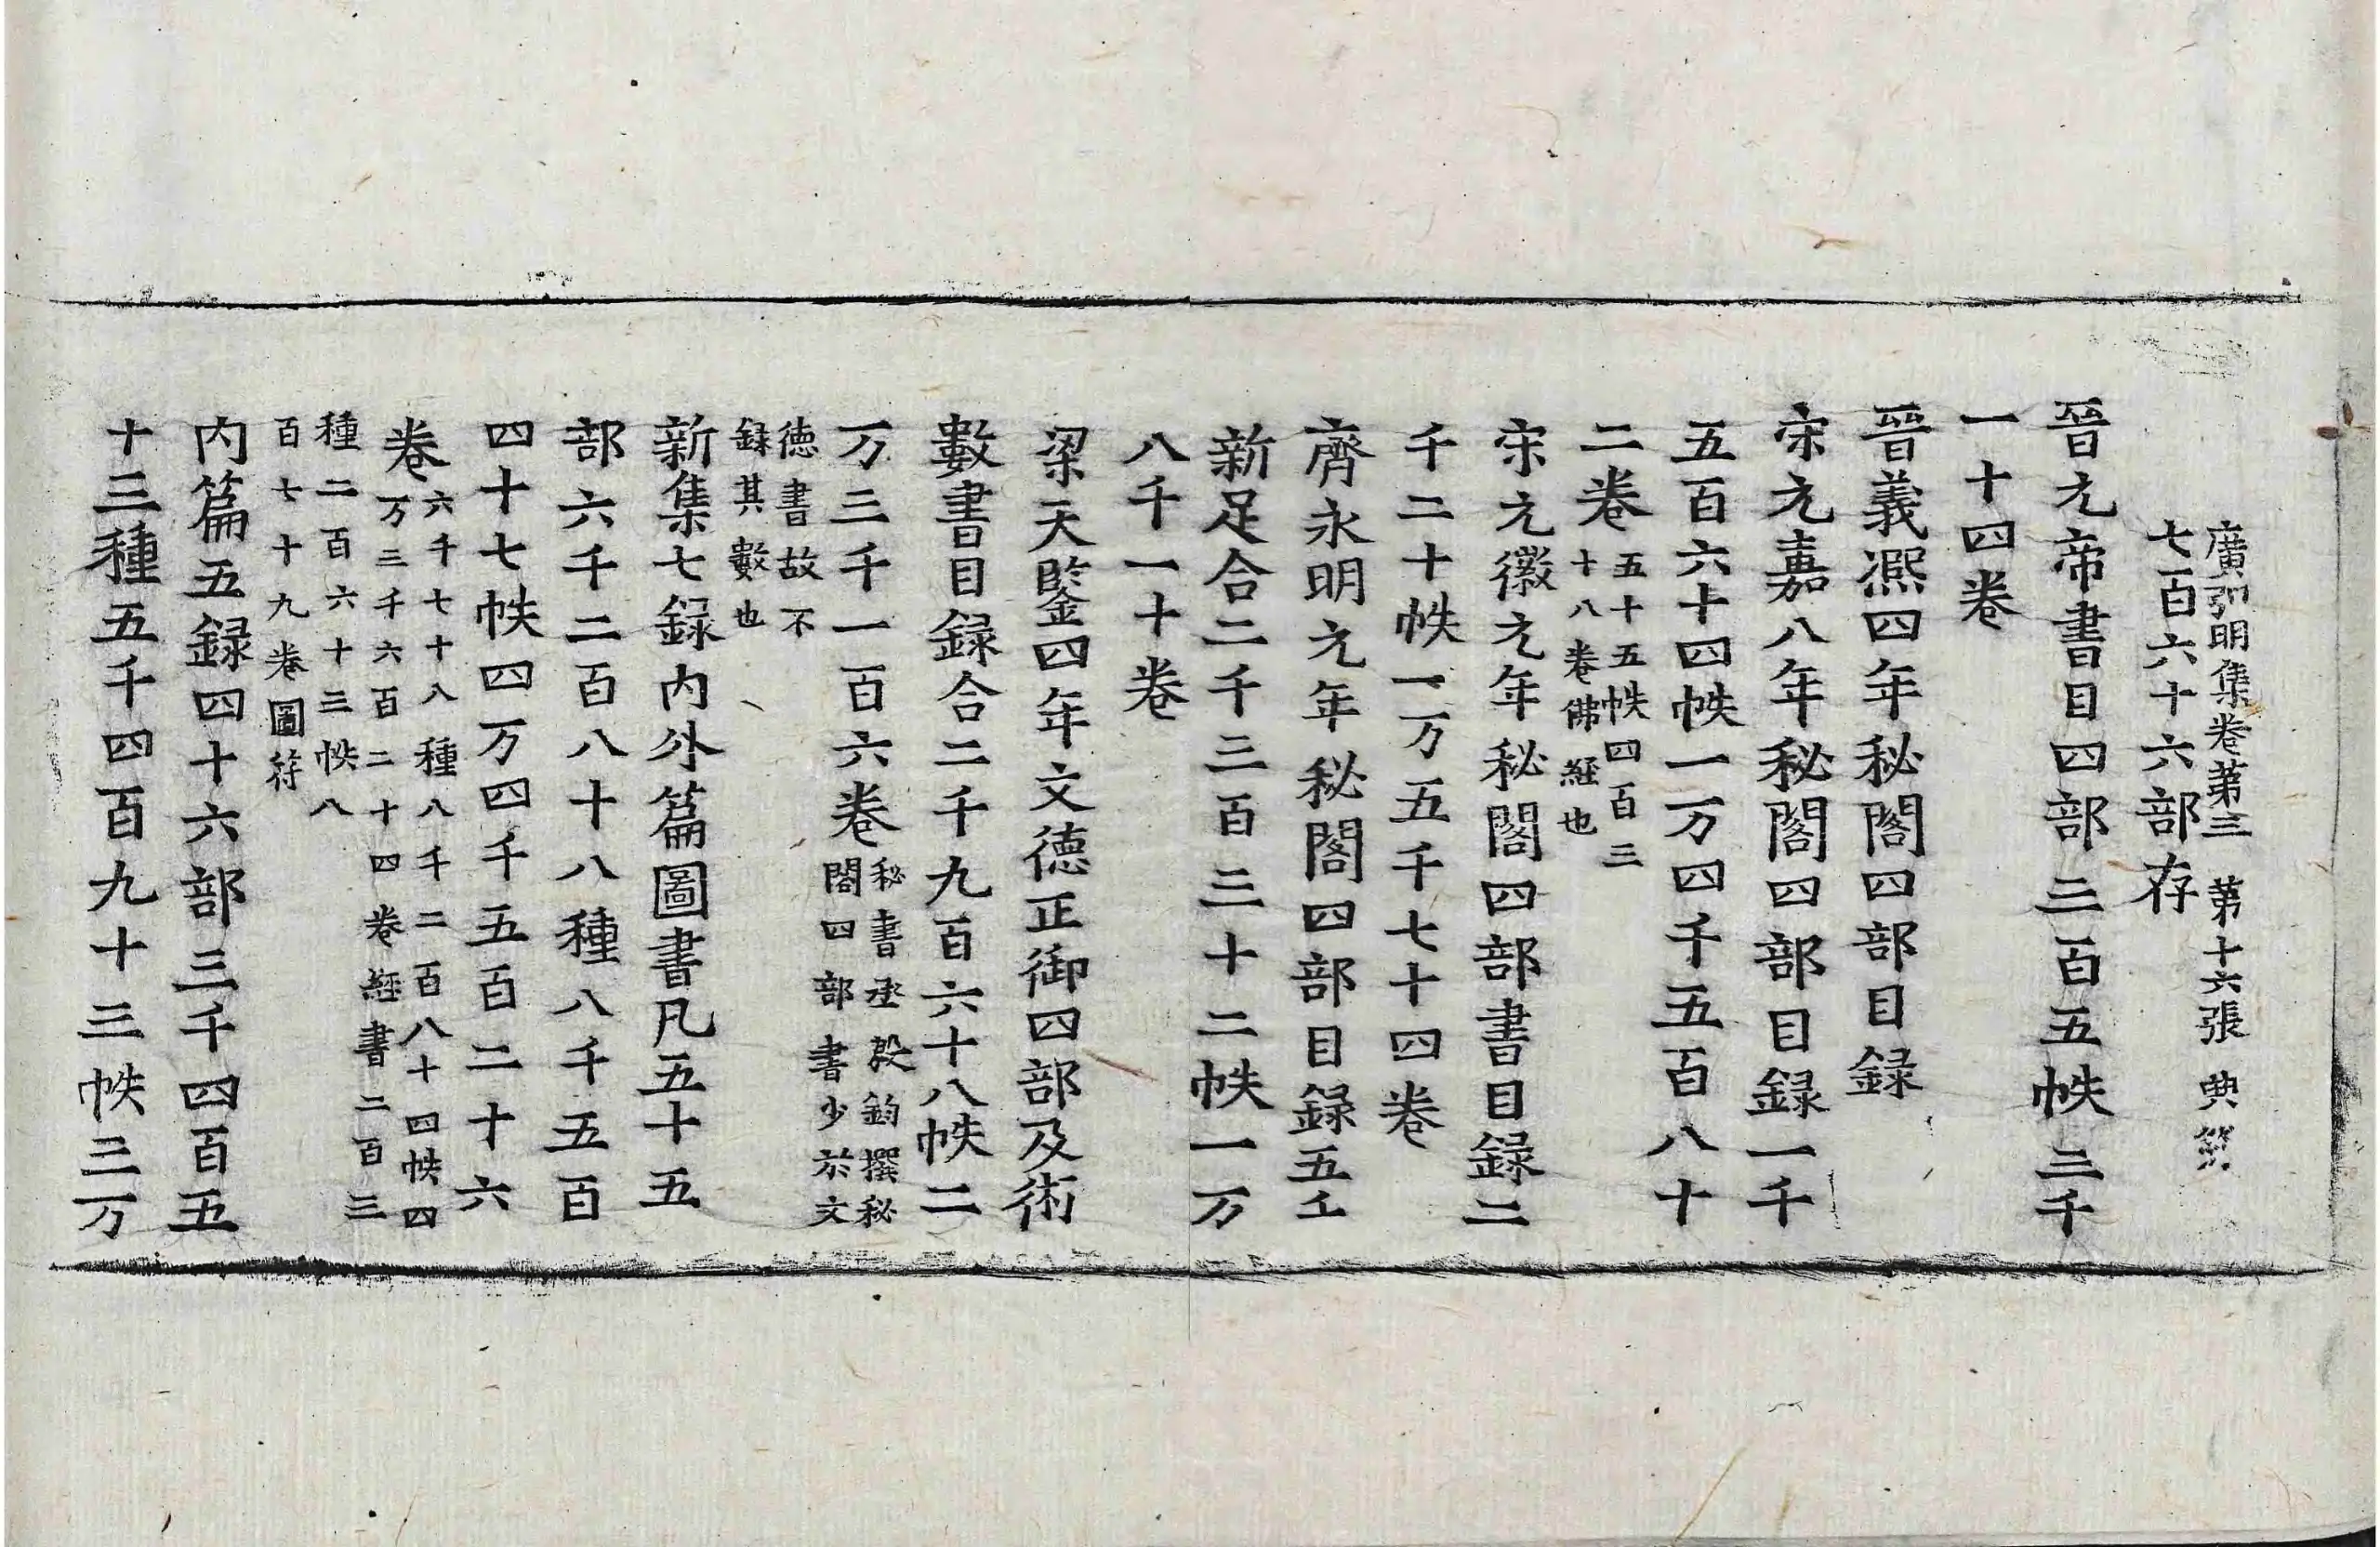 廣弘明集卷第三 第十六張 典
七百六十六部存
晉元帝書目四部三百五帙三千
一十四卷
晉義熈四年秘閣四部目録
宋元嘉八年秘閣四部目録一千
五百六十四帙一万四千五百八十
二卷五十五帙四百三
十八卷佛經也
宋元徽元年秘閣四部書目録二
千二十帙一万五千七十四卷
齊永明元年秘閣四部目録五千
新足合二千三百三十二帙一万
八千一十卷
梁天監四年文德正御四部及術
數書目録合二千九百六十八帙二
万三千一百六卷秘書丞殷鈞撰秘
閣四部書少於文
德書故不
録其數也
新集七録内外篇圖書凡五十五
部六千二百八十八種八千五百
四十七帙四万四千五百二十六
卷六千七十八種八千二百八十四帙四
万三千六百二十四卷經書二百三
種二百六十三帙八
百七十九卷圖符
内篇五録四十六部三千四百五
十三種五千四百九十三帙三万